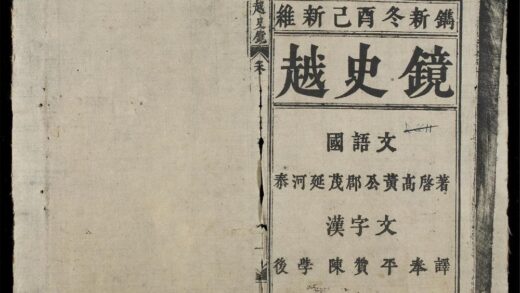 維新己酉冬新鐫
越史鏡
國語文
泰河延茂郡公黃高啓著
漢字文
後學陳贊平奉譯
越史鏡